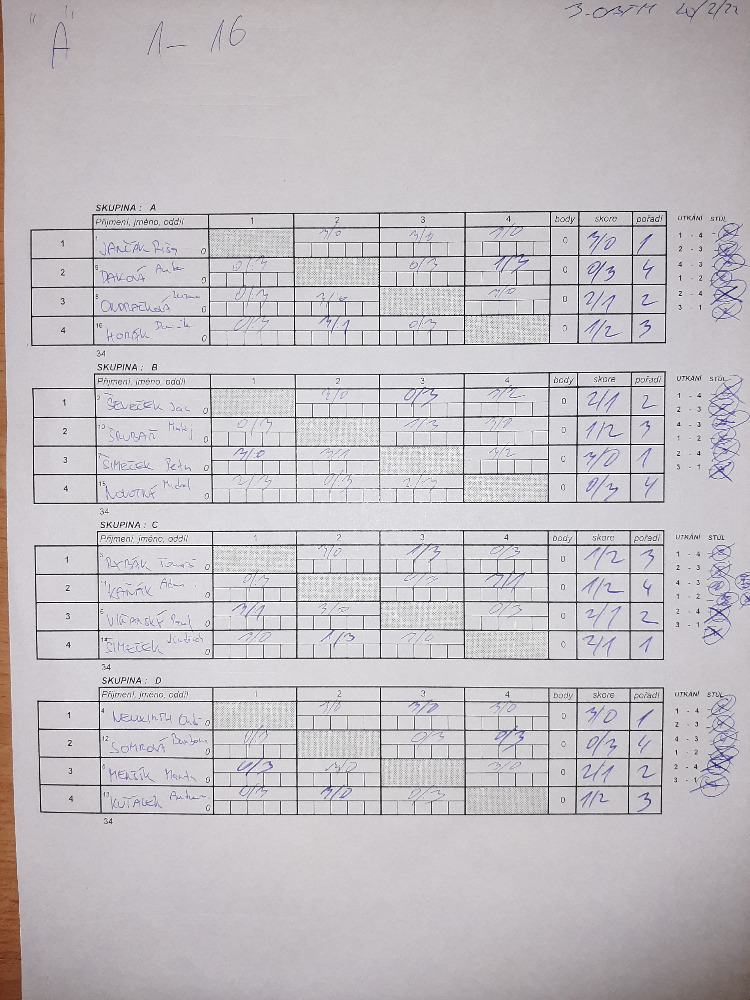 "A" 1-16
SKUPINA : A
Příjmení, jméno, oddíl 1 2 3 4 body skore pořadí UTKÁNÍ STŮL
1 0 3/0 3/0 3/0 0 3/0 1
2 0 0/3 0/3 1/3 0 0/3 4
3 0 0/3 3/0 3/0 0 2/1 2
4 HORÁK 0 0/3 3/1 0/3 0 1/2 3
1 - 4
2 - 3
4 - 3
1 - 2
2 - 4
3 - 1
34
SKUPINA : B
Příjmení, jméno, oddíl 1 2 3 4 body skore pořadí UTKÁNÍ STŮL
1 ŠEVEČEK Jan 0 3/0 0/3 3/2 0 2/1 2
2 Matěj 0 0/3 1/3 3/0 0 1/2 3
3 ŠIMEČEK Petr 0 3/0 3/1 3/2 0 3/0 1
4 NOVOTNÝ Michal 0 2/3 0/3 2/3 0 0/3 4
1 - 4
2 - 3
4 - 3
1 - 2
2 - 4
3 - 1
34
SKUPINA : C
Příjmení, jméno, oddíl 1 2 3 4 body skore pořadí UTKÁNÍ STŮL
1 RYBÁK Tomáš 0 3/0 1/3 0/3 0 1/2 3
2 KAŇÁK Adam 0 0/3 0/3 3/1 0 1/2 4
3 0 3/1 3/0 0/3 0 2/1 2
4 ŠIMEČEK 0 3/0 1/3 3/0 0 2/1 1
1 - 4
2 - 3
4 - 3
1 - 2
2 - 4
3 - 1
34
SKUPINA : D
Příjmení, jméno, oddíl 1 2 3 4 body skore pořadí UTKÁNÍ STŮL
1 0 3/0 3/0 3/0 0 3/0 1
2 0 0/3 0/3 0/3 0 0/3 4
3 MENŠÍK 0 0/3 3/0 3/0 0 2/1 2
4 KUTÁLEK 0 0/3 3/0 0/3 0 1/2 3
1 - 4
2 - 3
4 - 3
1 - 2
2 - 4
3 - 1
34